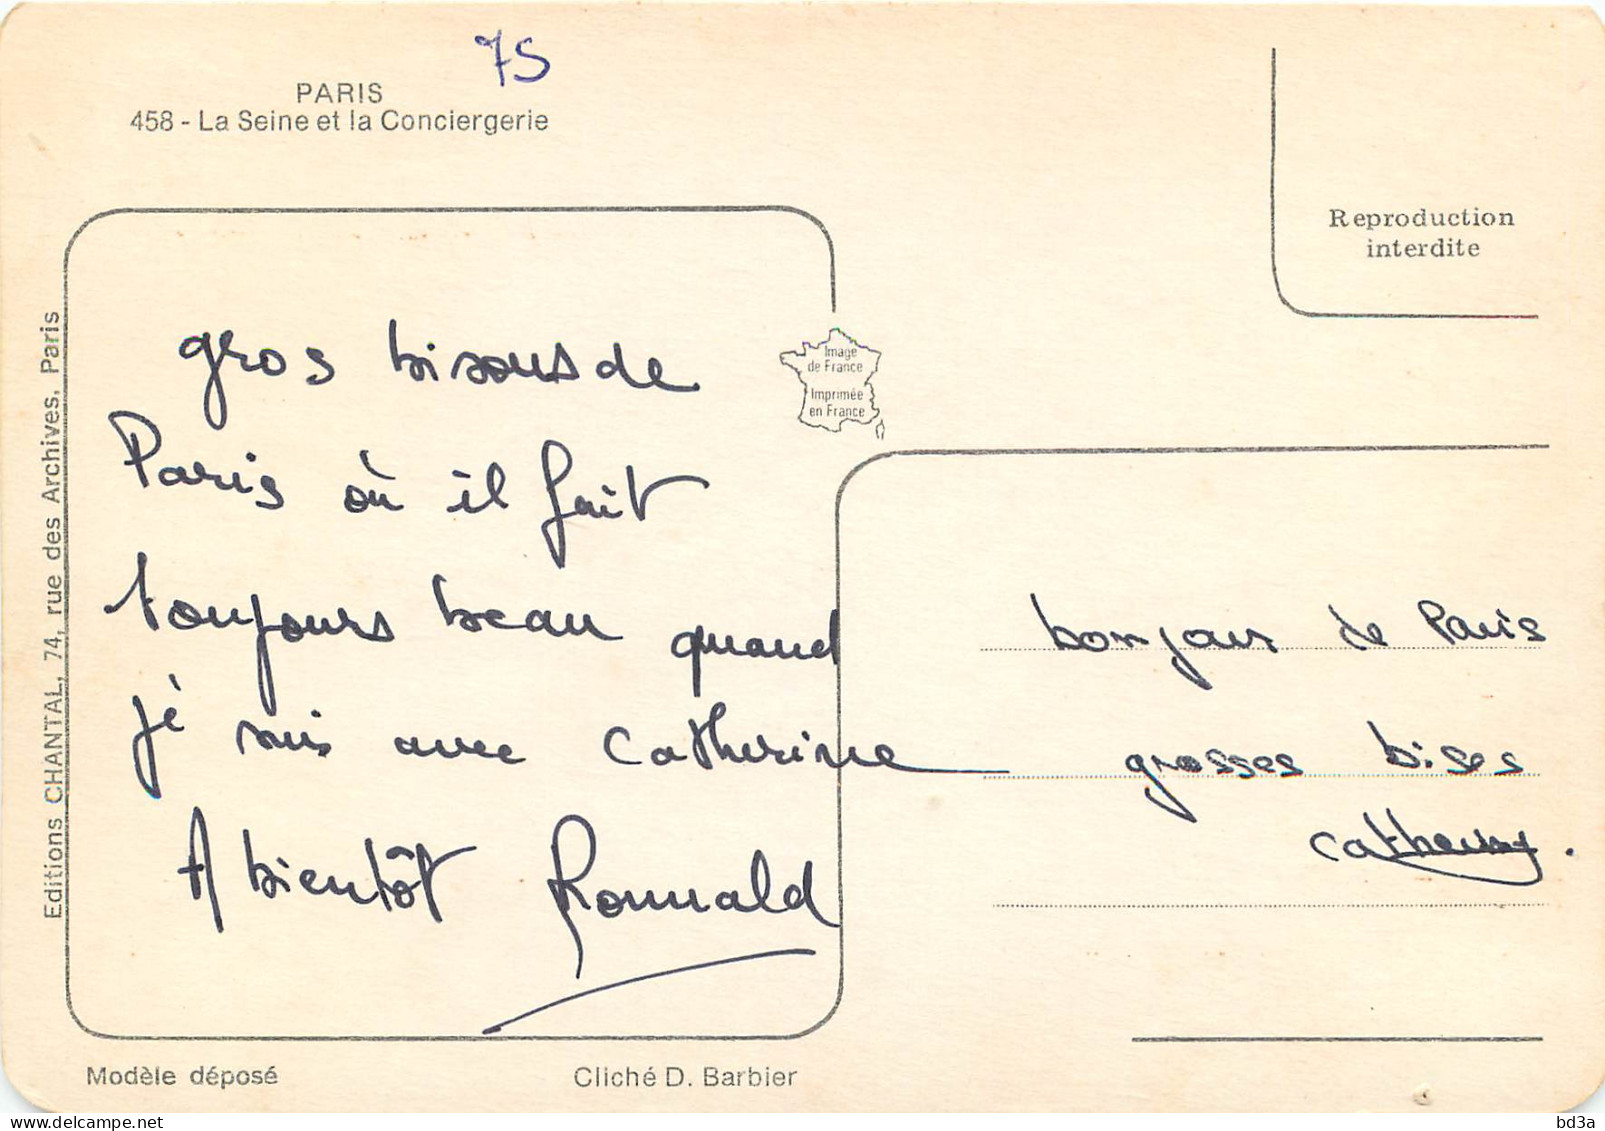 75
PARIS
458 - La Seine et la Conciergerie
Reproduction
interdite
Editions CHANTAL, 74, rue des Archives, Paris
Image
de France
Imprimée
en France
gros bisous de
Paris où il fait
toujours beau quand
je suis avec Catherine
A bientôt Romuald
bonjour de Paris
grosses bises
Catherine.
Modèle déposé
Cliché D. Barbier
delcampe.net
bd3a